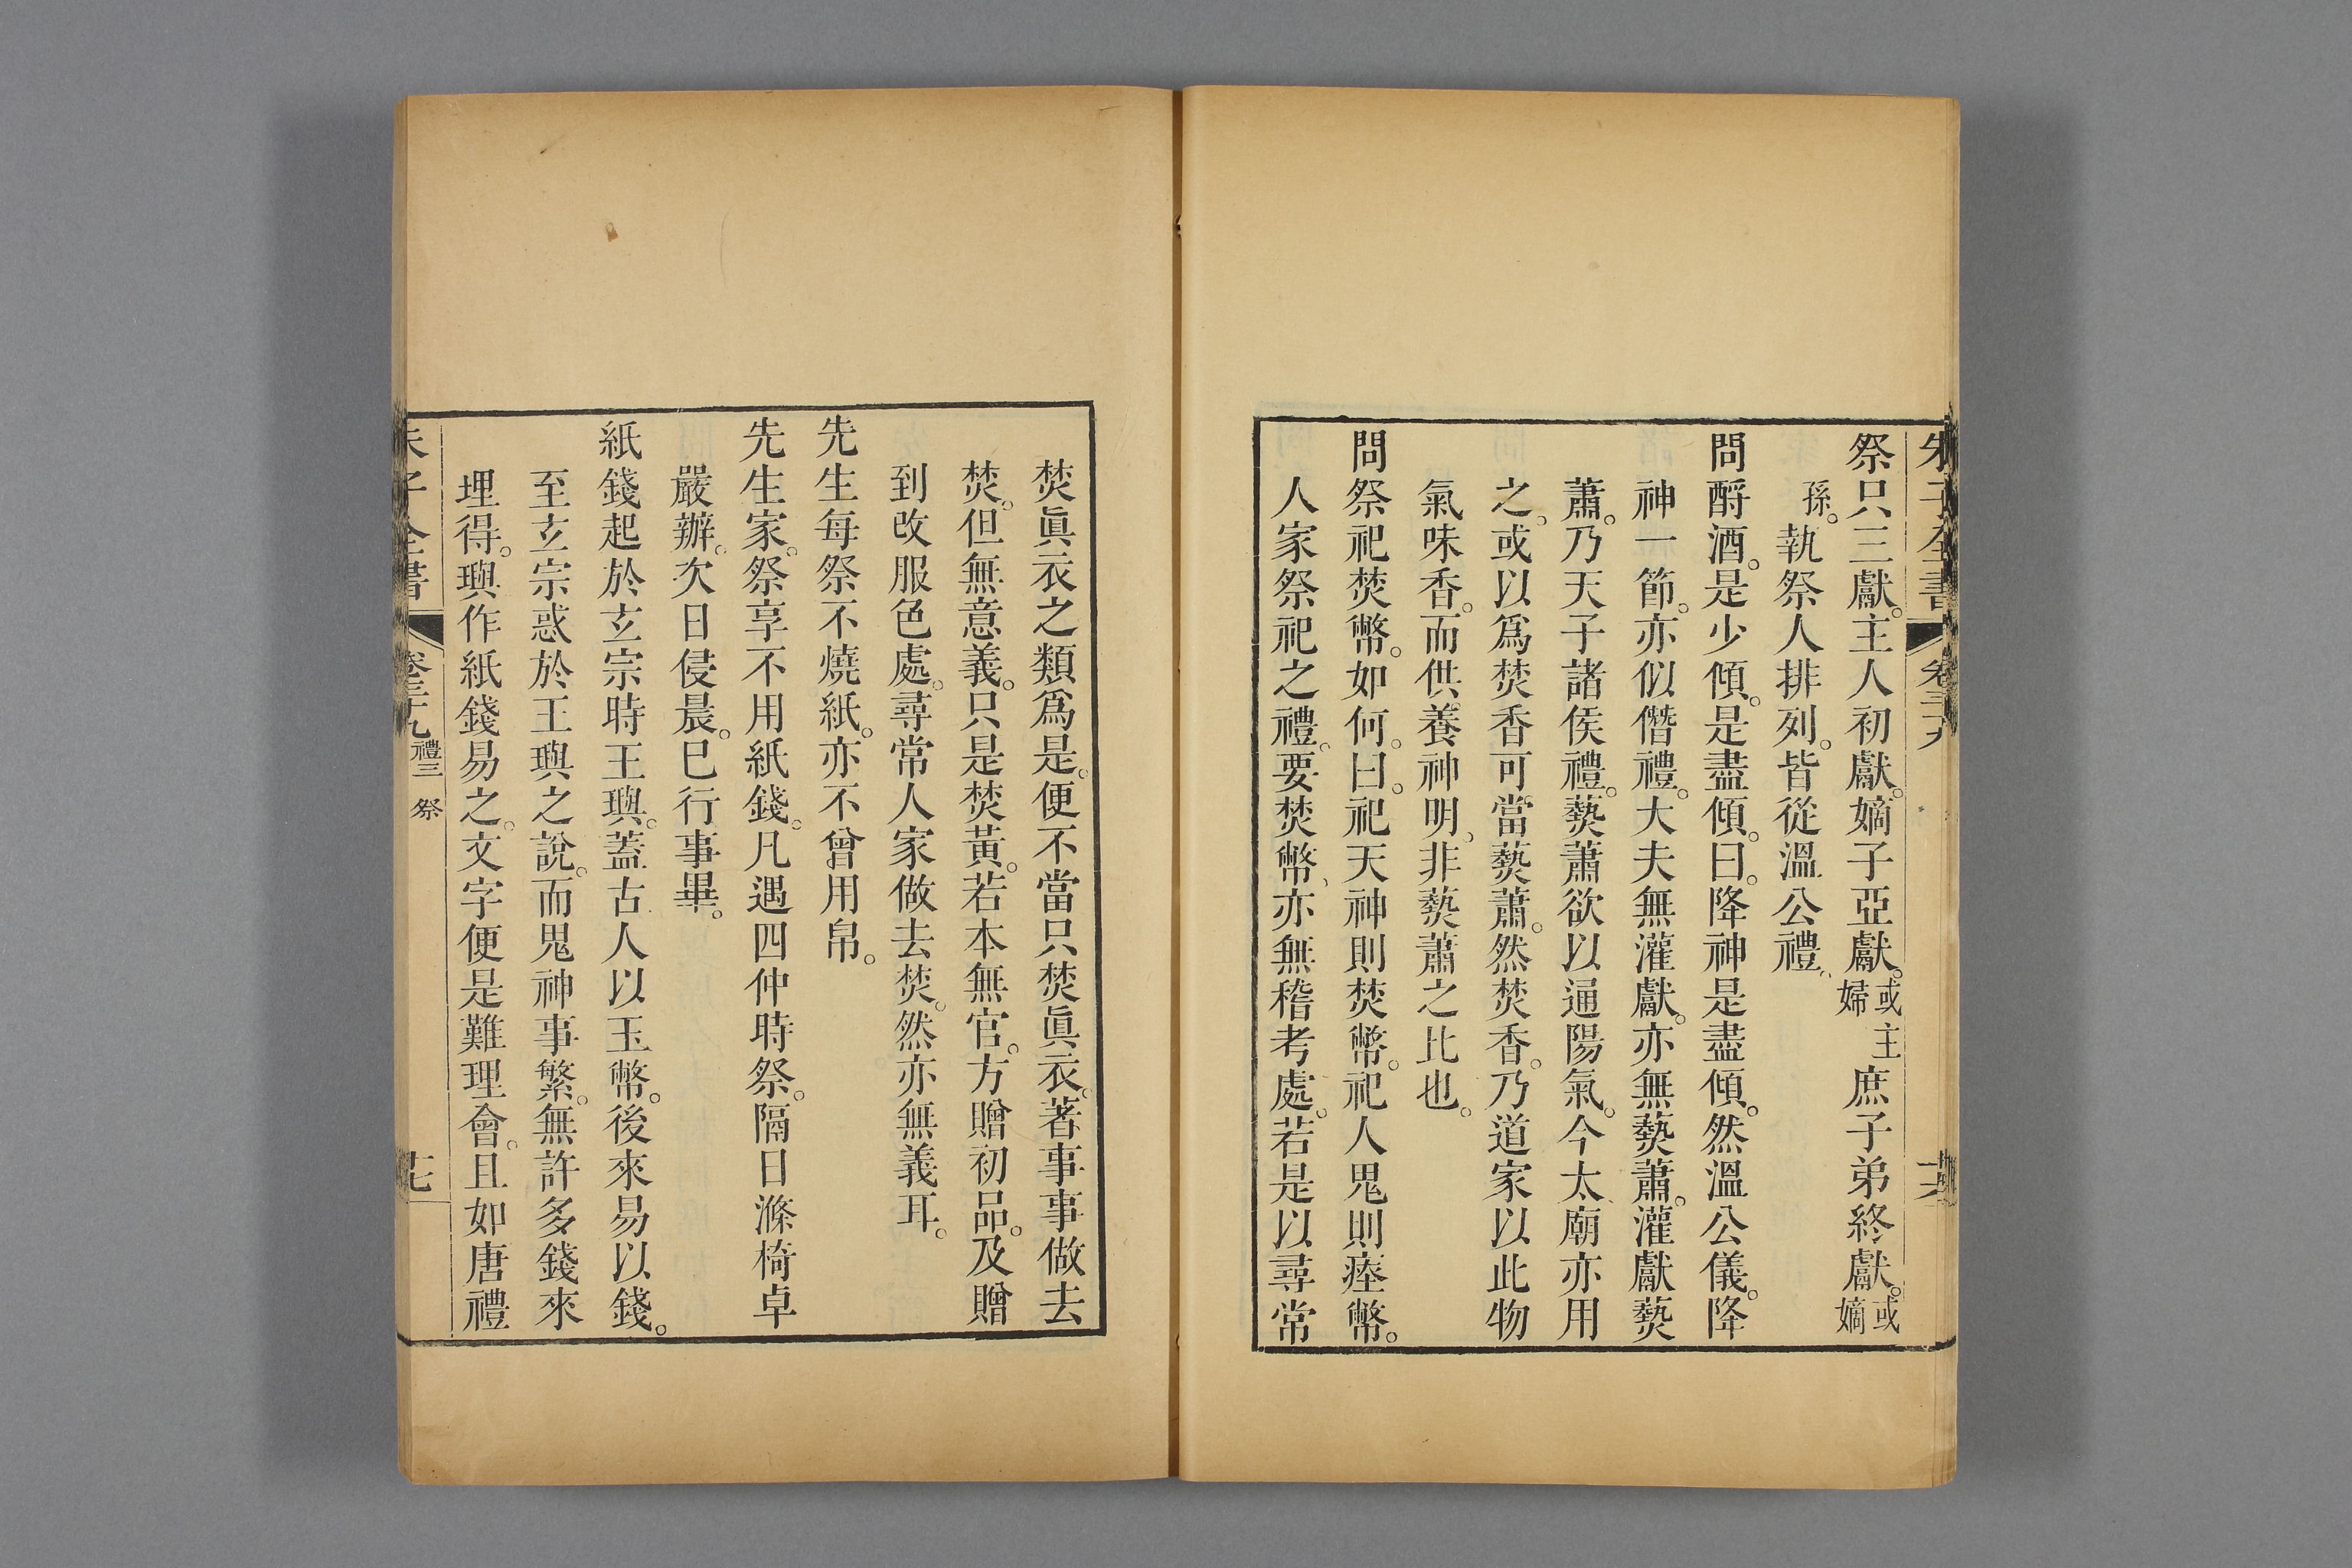 朱子全書 卷三十九
祭只三獻。主人初獻。嫡子亞獻。或主婦庶子弟終獻。或嫡
孫。執祭人排列。皆從溫公禮、
問酹酒。是少傾。是盡傾。曰。降神是盡傾。然溫公儀。降
神一節。亦似僭禮。大夫無灌獻。亦無爇蕭。灌獻爇
蕭。乃天子諸侯禮。爇蕭欲以通陽氣。今太廟亦用
之。或以爲焚香可當爇蕭。然焚香。乃道家以此物
氣味香。而供養神明、非爇蕭之比也。
問祭祀焚幣。如何。曰。祀天神則焚幣。祀人鬼則瘞幣。
人家祭祀之禮。要焚幣、亦無稽考處。若是以尋常
焚眞衣之類爲是。便不當只焚眞衣。著事事做去
焚。但無意義。只是焚黃。若本無官。方贈初品。及贈
到改服色處。尋常人家做去焚。然亦無義耳。
先生每祭不燒紙。亦不曾用帛。
先生家。祭享不用紙錢。凡遇四仲時祭。隔日滌椅卓
嚴辦。次日侵晨。巳行事畢。
紙錢起於玄宗時王璵。蓋古人以玉幣。後來易以錢。
至玄宗惑於王璵之說。而鬼神事繁。無許多錢來
埋得。璵作紙錢易之。文字便是難理會。且如唐禮
朱子全書 卷三十九 禮三 祭 廿七